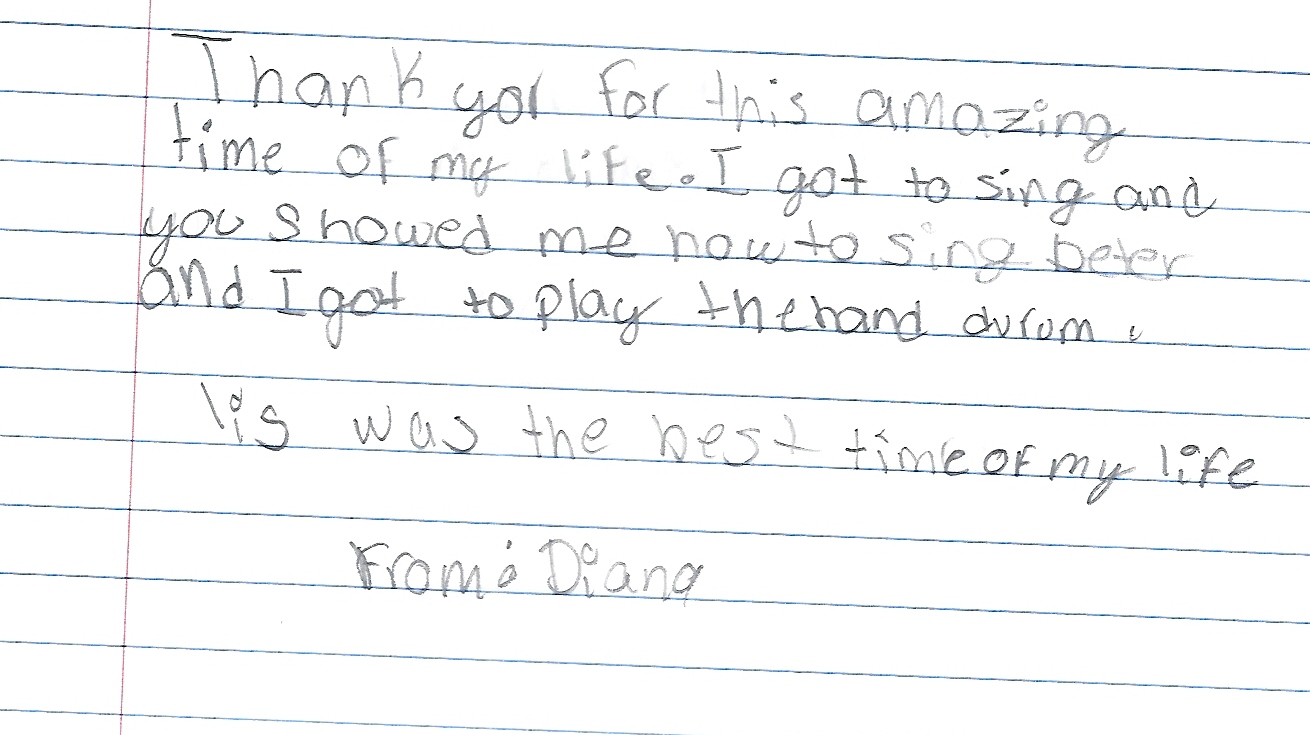 Thank you for this amazing
time of my life. I got to sing and
you showed me how to sing beter
and I got to play the hand durom.
Iis was the best time of my life
From: Diana